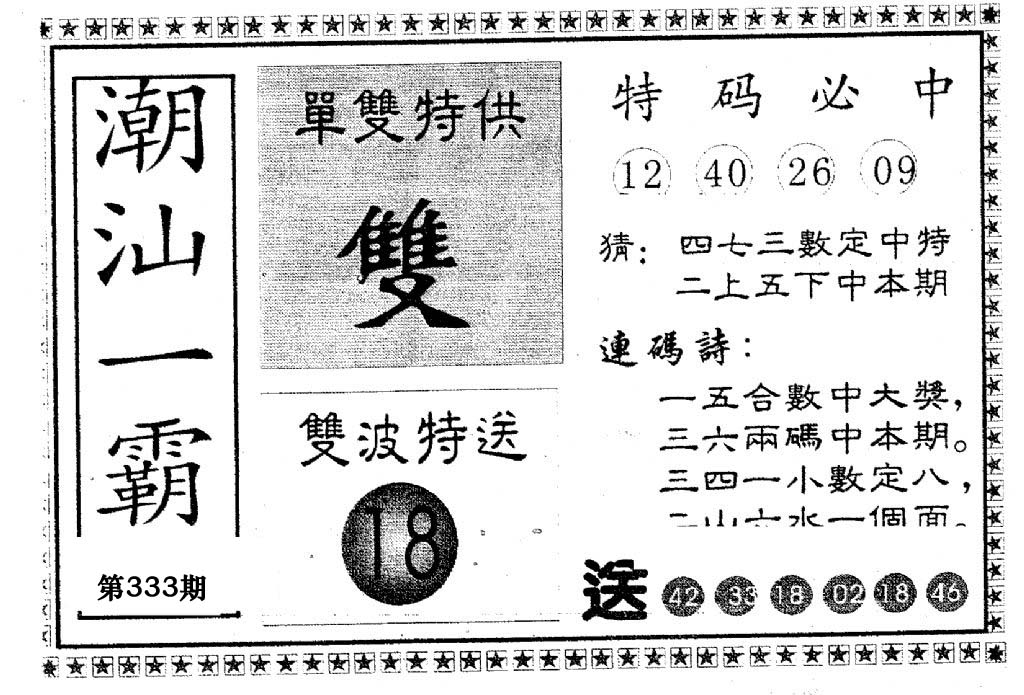 潮汕一霸
第333期
單雙特供
雙
雙波特送
18
特码必中
12 40 26 09
猜：四七三數定中特
二上五下中本期
連碼詩：
一五合數中大獎，
三六兩碼中本期。
三四一小數定八，
二山六水一個面。
送 42 33 18 02 18 46